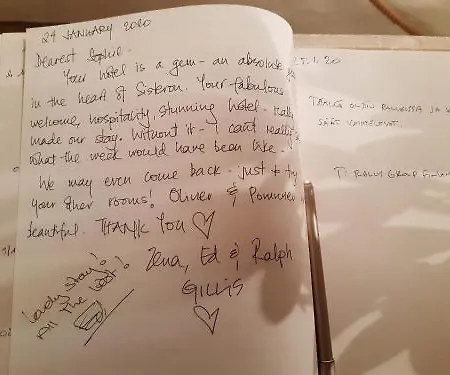 24 JANUARY 2020
Dearest Sophie -
Your hotel is a gem - an absolute
in the heart of Sisteron. Your fabulous
welcome, hospitality, stunning hotel - really
made our stay. Without it - I can't really
what the week would have been like.
We may even come back - just to try
your other rooms! Oliver &
beautiful. THANK YOU ♡
Zena, Ed & Ralph
GILLIS
♡
Lovely stay!
All the best!
5.1.20
TÄÄLLÄ OLTIIN
T: RALLY GROUP FINLAND